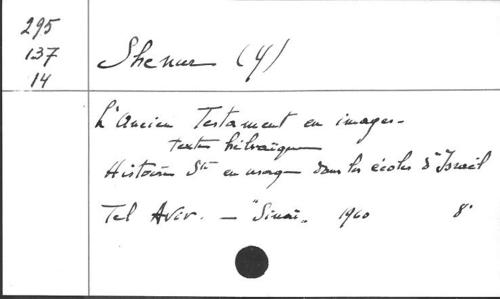 295
137
14
Shenur (Y)
L'Ancien Testament en images -
texte hébraïque
Histoire Ste en usage dans les écoles d'Israël
Tel Aviv. - "Sinaï" 1960 8°